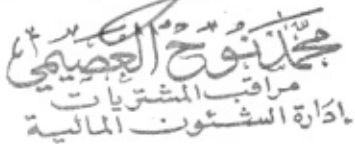 محمد نوح العصيمي
مراقب المشتريات
بإدارة الشئون المالية